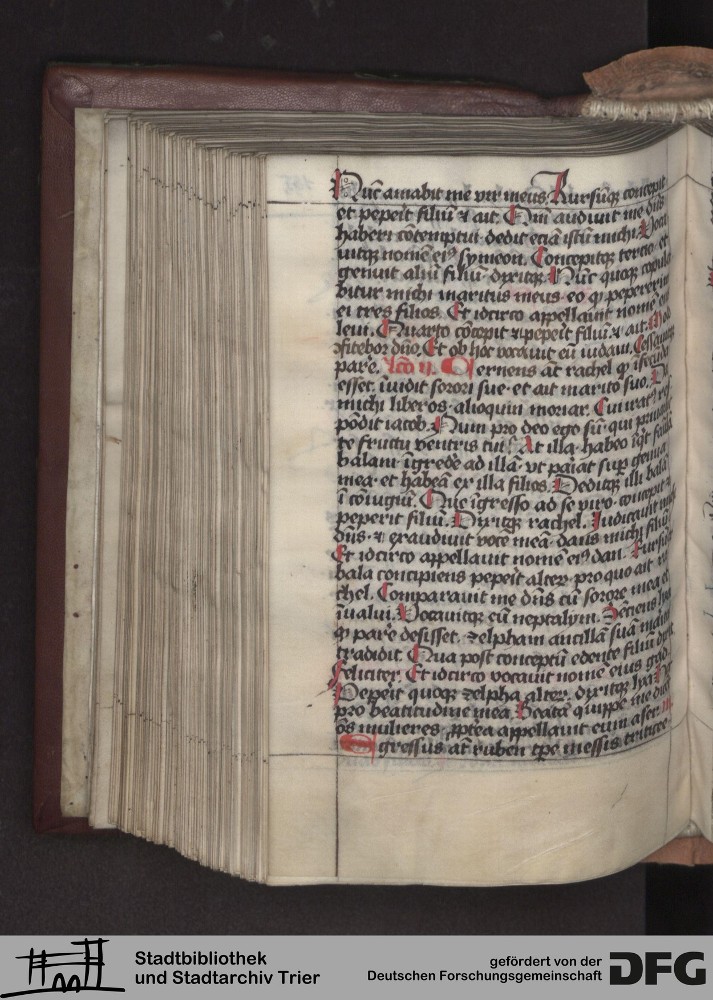 Nūc amabit me vir meus. Rursūq; concepit
et peperit filiū ⁊ ait. Qm̄ audiuit me dn̄s
haberi cōtemptui dedit eciā istū michi. Voca
uitq; nomē eiꝰ symeon. Concepitq; tercio et
genuit aliū filiū dixitq;. Nūc quoq; copula
bitur michi maritus meus eo ꝙ pepererim
ei tres filios. Et idcirco appellauit nomē eiꝰ
leui. Quarto cōcepit ⁊ peperit filiū ⁊ ait. Mo
ꝯfitebor dn̄o. Et ob hoc vocauit eū iudam. Cessauitq;
pare̕. lc̄o ii. Cernens at̄ rachel ꝙ īfecūda
esset. īuidit sorori sue et ait marito suo. Da
michi liberos alioquin moriar. Cui iratꝰ res
pōdit iacob. Num pro deo ego sū qui priuaui
te fructu ventris tui. At illa habeo īqt̄ famulā
balam īgrede̕ ad illā vt pariat sup̄ genua
mea et habeā ex illa filios. Deditq; illi balā
ī cōiugiū. Que īgresso ad se viro concepit ⁊
peperit filiū. Dixitq; rachel. Iudicauit michi
dn̄s ⁊ exaudiuit vocē meā dans michi filiū
Et idcirco appellauit nomē eiꝰ dan. Rursūq;
bala concipiens peperit alterꝫ pro quo ait ra
chel. Comparauit me dn̄s cū sorore mea et
īualui. Vocauitq; eū neptalym. Sēciens lya
ꝙ pare̕ desisset. zelpham ancillā suā marito
tradidit. Qua post conceptū edente filiū dixit
feliciter. Et idcirco vocauit nomē eius gad.
Peperit quoq; zelpha alterꝫ. dixitq; lya. Hoc
pro beatitudine mea. Beatā quippe me dicēt
oēs mulieres. ꝓpterea appellauit eum aser.
Egressus at̄ ruben tꝑe messis triticee
Stadtbibliothek
und Stadtarchiv Trier
gefördert von der
Deutschen Forschungsgemeinschaft
DFG